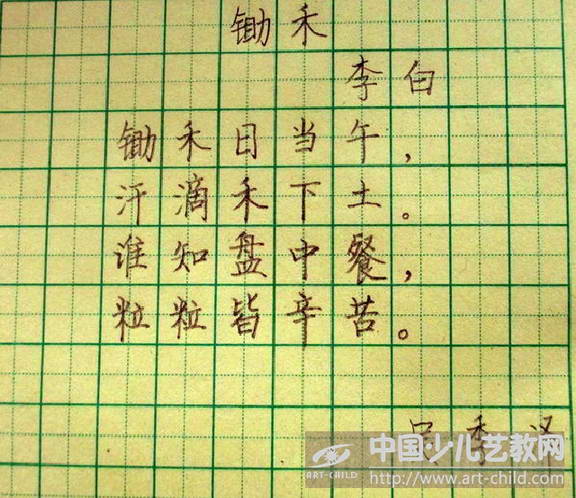 锄禾
李白
锄禾日当午，
汗滴禾下土。
谁知盘中餐，
粒粒皆辛苦。
吴季
中国·少儿艺教网
ART-CHILD
http://www.art-child.com